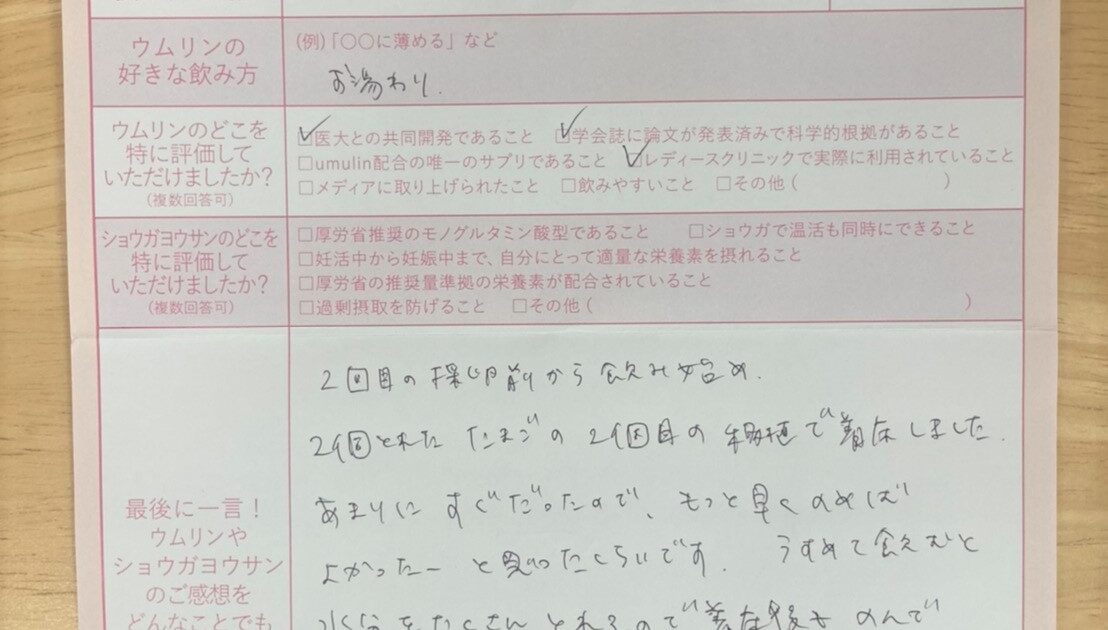 ウムリンの
好きな飲み方
(例)「〇〇に薄める」など
お湯わり.
ウムリンのどこを
特に評価して
いただけましたか?
(複数回答可)
☑医大との共同開発であること ☑学会誌に論文が発表済みで科学的根拠があること
□umulin配合の唯一のサプリであること ☑レディースクリニックで実際に利用されていること
□メディアに取り上げられたこと □飲みやすいこと □その他( )
ショウガヨウサンのどこを
特に評価して
いただけましたか?
(複数回答可)
□厚労省推奨のモノグルタミン酸型であること □ショウガで温活も同時にできること
□妊活中から妊娠中まで、自分にとって適量な栄養素を摂れること
□厚労省の推奨量準拠の栄養素が配合されていること
□過剰摂取を防げること □その他( )
最後に一言!
ウムリンや
ショウガヨウサン
のご感想を
どんなことでも
2回目の採卵前から飲み始め.
2個とれた たまごの 2個目の移植で着床しました.
あまりに すぐだったので、もっと早くのめば
よかったー と思ったくらいです. うすめて飲むと
水分をたくさんとれるので着床後も のんで